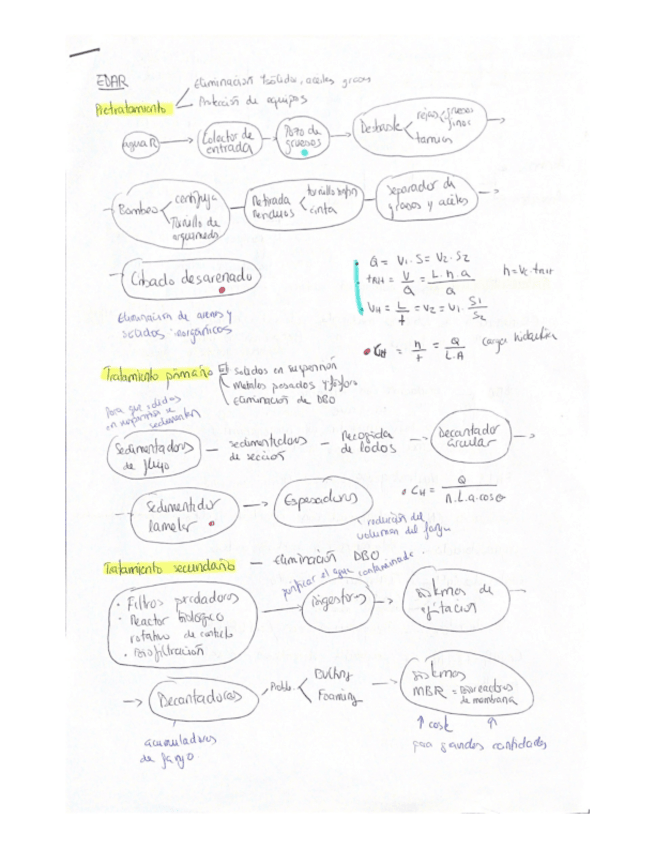 EDAR
Eliminación sólidos, aceites grasas
Pretratamiento
Protección de equipos
Agua R
Colector de entrada
Pozo de gruesos
Desbaste
rejas
gruesos
finos
tamices
Bombeo
centrifuga
Tornillo de arquimedes
Retirada residuos
tornillo
cinta
Separador de grasas y aceites
Cribado desarenado
Eliminación de arenas y
sólidos inorgánicos
Q = V1·S = V2·S2
tRH = V/Q = L·h·a/Q
VH = L/t = V2 = V1· S1/S2
CH = h/t = Q/L·A carga hidraulica
Tratamiento primario
sólidos en suspensión
metales pesados y fósforo
Eliminación de DBO
Para que sólidos
en suspensión se
sedimenten
Sedimentadores de flujo
sedimentadores de sección
Recogida de lodos
Decantador circular
Sedimentador lamelar
Espesadores
CH = Q/n.L.a.cosθ
reducción del
volumen del fango
Tratamiento secundario
Eliminación DBO
purificar el agua contaminada
· Filtros percoladores
· Reactor biológico
rotativo de contacto
· Biofiltración
Digestores
Sistemas de agitación
Decantadores
Proble.
Bulking
Foaming
Sistemas
MBR = Bioreactores
de membrana
acumuladores
de fango
↑ coste
para grandes cantidades